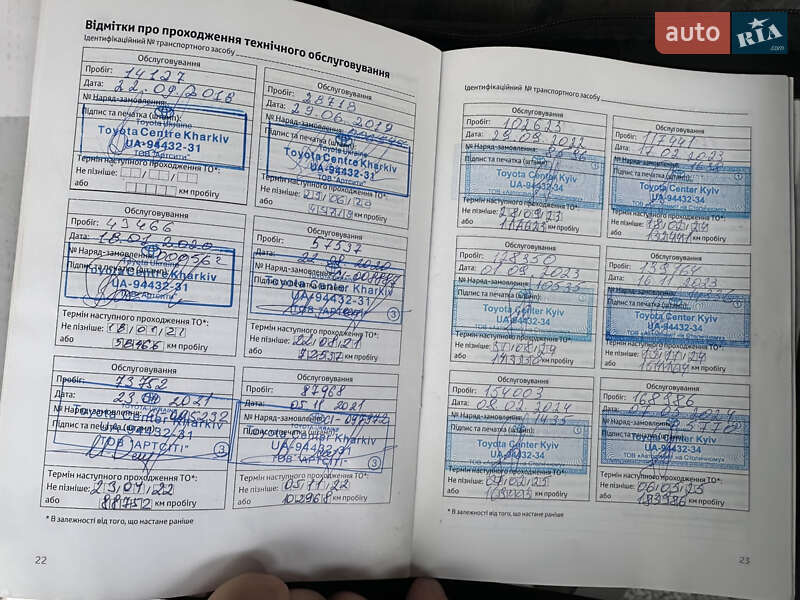 auto RIA .com
Відмітки про проходження технічного обслуговування
Ідентифікаційний № транспортного засобу
Обслуговування
Пробіг: 14127
Дата: 22.09.2018
№ Наряд-замовлення:
Підпис та печатка (штамп):
Toyota Ukraine
Toyota Centre Kharkiv
UA-94432-31
ТОВ "Артсіті"
Термін наступного проходження ТО*:
Не пізніше:
або км пробігу
Обслуговування
Пробіг: 28718
Дата: 29.06.2019
№ Наряд-замовлення:
Підпис та печатка (штамп):
Toyota Ukraine
Toyota Centre Kharkiv
UA-94432-31
ТОВ "Артсіті"
Термін наступного проходження ТО*:
Не пізніше: 29/06/20
або км пробігу
Обслуговування
Пробіг: 43466
Дата: 18.01.2020
№ Наряд-замовлення: 000562
Підпис та печатка (штамп):
Toyota Ukraine
Toyota Centre Kharkiv
UA-94432-31
ТОВ "Артсіті"
Термін наступного проходження ТО*:
Не пізніше: 18/01/21
або 58466 км пробігу
Обслуговування
Пробіг: 57537
Дата: 22.08.2020
№ Наряд-замовлення:
Підпис та печатка (штамп):
Toyota Center Kharkiv
UA-94432-31
ТОВ "Артсіті"
3
Термін наступного проходження ТО*:
Не пізніше: 22/08/21
або 72537 км пробігу
Обслуговування
Пробіг: 73752
Дата: 23.07.2021
№ Наряд-замовлення:
Підпис та печатка (штамп):
Toyota Center Kharkiv
UA-94432-31
ТОВ "АРТСІТІ"
3
Термін наступного проходження ТО*:
Не пізніше: 23/07/22
або 88752 км пробігу
Обслуговування
Пробіг: 87968
Дата: 05.11.2021
№ Наряд-замовлення:
Підпис та печатка (штамп):
Toyota Center Kharkiv
UA-94432-31
ТОВ "АРТСІТІ"
3
Термін наступного проходження ТО*:
Не пізніше: 05/11/22
або 102968 км пробігу
* В залежності від того, що настане раніше
22
Ідентифікаційний № транспортного засобу
Обслуговування
Пробіг: 102623
Дата: 29.09.2022
№ Наряд-замовлення:
Підпис та печатка (штамп):
Toyota Center Kyiv
UA-94432-34
Термін наступного проходження ТО*:
Не пізніше: 28/09/23
або 117623 км пробігу
Обслуговування
Пробіг: 117441
Дата: 2023
№ Наряд-замовлення:
Підпис та печатка (штамп):
Toyota Center Kyiv
UA-94432-34
Термін наступного проходження ТО*:
Не пізніше: 18/02/24
або 132441 км пробігу
Обслуговування
Пробіг: 128350
Дата: 01.09.2023
№ Наряд-замовлення: 10535
Підпис та печатка (штамп):
Toyota Center Kyiv
UA-94432-34
Термін наступного проходження ТО*:
Не пізніше: 31/08/24
або 143350 км пробігу
Обслуговування
Пробіг: 139164
Дата: 11.2023
№ Наряд-замовлення:
Підпис та печатка (штамп):
Toyota Center Kyiv
UA-94432-34
Термін наступного проходження ТО*:
Не пізніше:
або км пробігу
Обслуговування
Пробіг: 154003
Дата: 2024
№ Наряд-замовлення: 1435
Підпис та печатка (штамп):
Toyota Center Kyiv
UA-94432-34
Термін наступного проходження ТО*:
Не пізніше: 04/02/25
або км пробігу
Обслуговування
Пробіг: 168986
Дата: 07.05.2024
№ Наряд-замовлення: 5770
Підпис та печатка (штамп):
Toyota Center Kyiv
UA-94432-34
Термін наступного проходження ТО*:
Не пізніше: 06/05/25
або 183986 км пробігу
* В залежності від того, що настане раніше
23